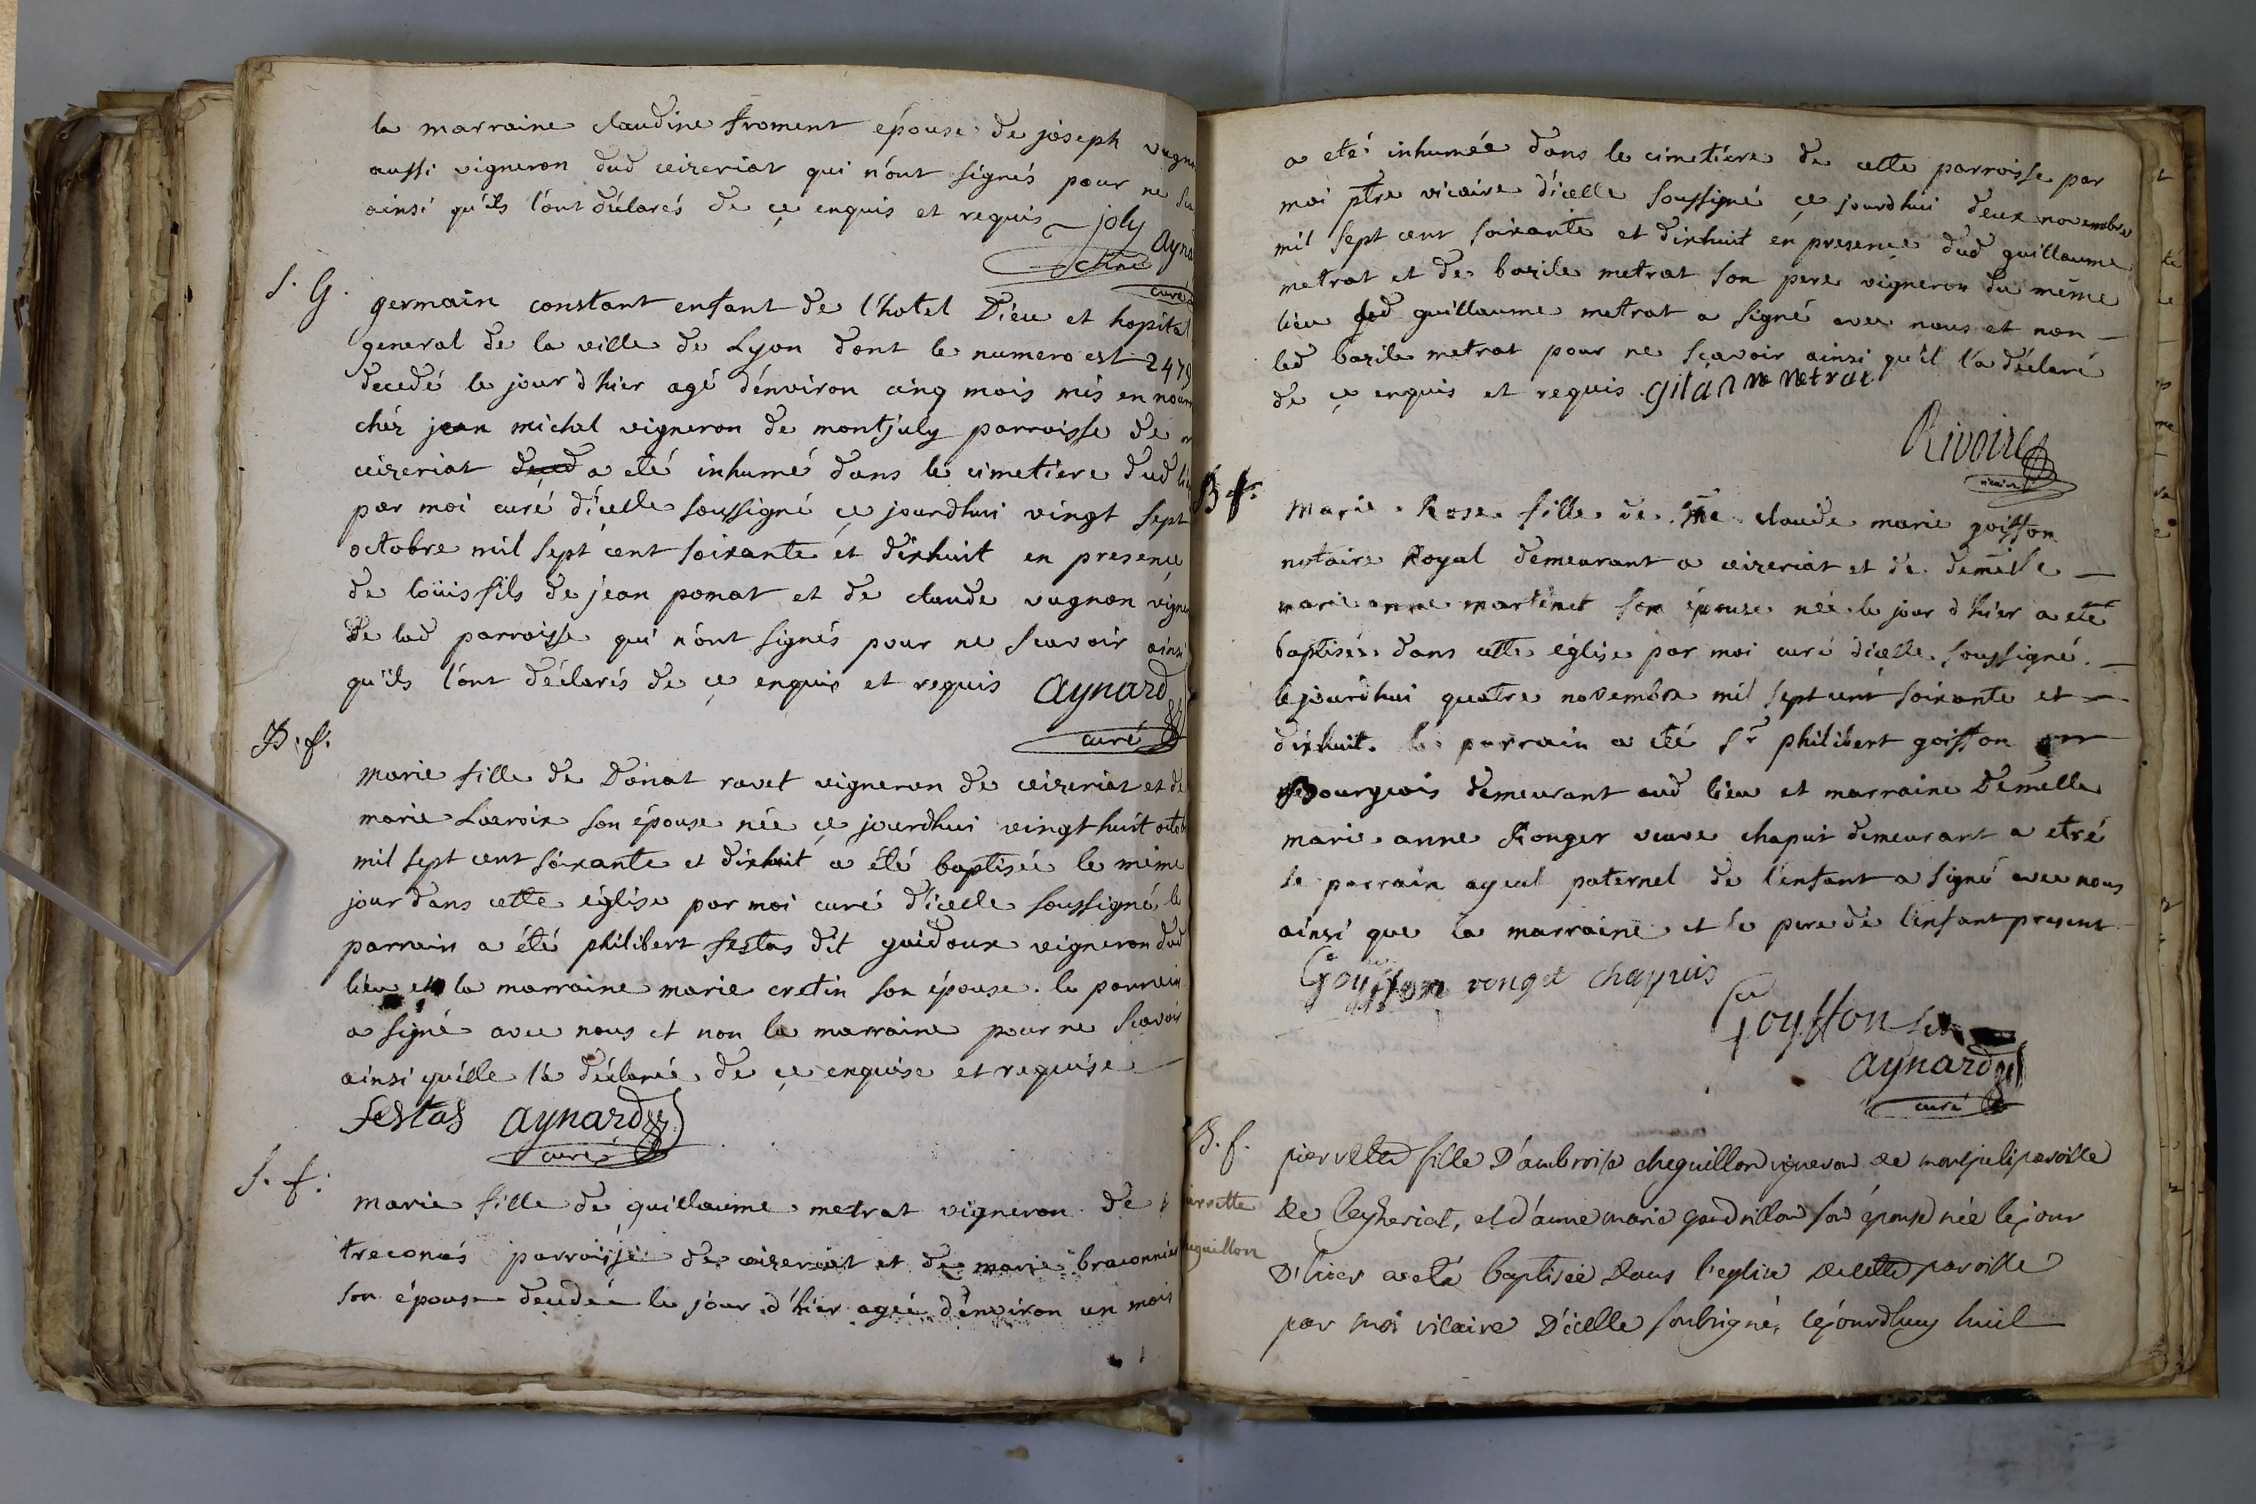 la marraine claudine froment épouse de joseph vugn
aussi vigneron dud ceizeriat qui n'ont signés pour ne sca
ainsi qu'ils l'ont déclarés de ce enquis et requis joly
ayna
curé
S. G.
germain constant enfant de l'hotel Dieu et hopital
general de la ville de Lyon dont le numero est 2479
decedé le jour d'hier agé d'environ cinq mois mis en nour
chéz jean michel vigneron de montjuly parroisse de
ceizeriat a eté inhumé dans le cimetiere dud lieu
par moi curé d'icelle soussigné ce jourdhui vingt sept
octobre mil sept cent soixante et dixhuit en presence
de loüis fils de jean ponat et de claude vugnon vigner
de lad parroisse qui n'ont signés pour ne scavoir ainsi
qu'ils l'ont déclarés de ce enquis et requis aynard
curé
B. f.
marie fille de Donat ravet vigneron de ceizeriat et de
marie Lacroix son épouse née ce jourdhui vingt huit octob
mil sept cent soixante et dixhuit a été baptisée le même
jour dans cette église par moi curé d'icelle soussigné le
parrain a été philibert festas dit guidoux vigneron dud
lieu et la marraine marie cretin son épouse. le parrain
a signé avec nous et non la marraine pour ne scavoir
ainsi qu'elle l'a déclaré de ce enquise et requise
festas aynard
curé
S. f.
marie fille de guillaume metrat vigneron de
treconas parroisse de ceizeriat et de marie braconnier
son épouse decedée le jour d'hier agée d'environ un mois
a eté inhumée dans le cimetiere de cette parroisse par
moi ptre vicaire d'icelle soussigné ce jourdhui deux novembre
mil sept cent soixante et dixhuit en presence dud guillaume
metrat et de bazile metrat son pere vigneron du même
lieu led guillaume metrat a signé avec nous et non
led bazile metrat pour ne scavoir ainsi qu'il l'a déclaré
de ce enquis et requis. gilanme metrat
Rivoire
vicaire
B f.
Marie Rose fille de Me claude marie goiffon
notaire Royal demeurant a ceizeriat et de demelle
marie anne martinet son épouse née le jour d'hier a eté
baptisée dans cette église par moi curé d'icelle soussigné.
cejourdhui quatre novembre mil sept cent soixante et
dixhuit. le parrain a eté Sr philibert goiffon
Bourgeois demeurant aud lieu et marraine Demelle
marie anne Ronger veuve chapuis demeurant a etré
le parrain ayeul paternel de l'enfant a signé avec nous
ainsi que la marraine et le pere de l'enfant present
Goyffon ronget chapuis
Goyffon
aynard
curé
B. f.
ierrette
heguillon
pierrette fille D'ambroise cheguillon vigneron de montjuli paroisse
De Ceyzeriat, et d'anne marie goudrillon son épouse née le jour
D'hier a eté baptisée dans l'eglise de cette paroisse
par moi vicaire D'icelle soubsigné, cejourdhuy huit